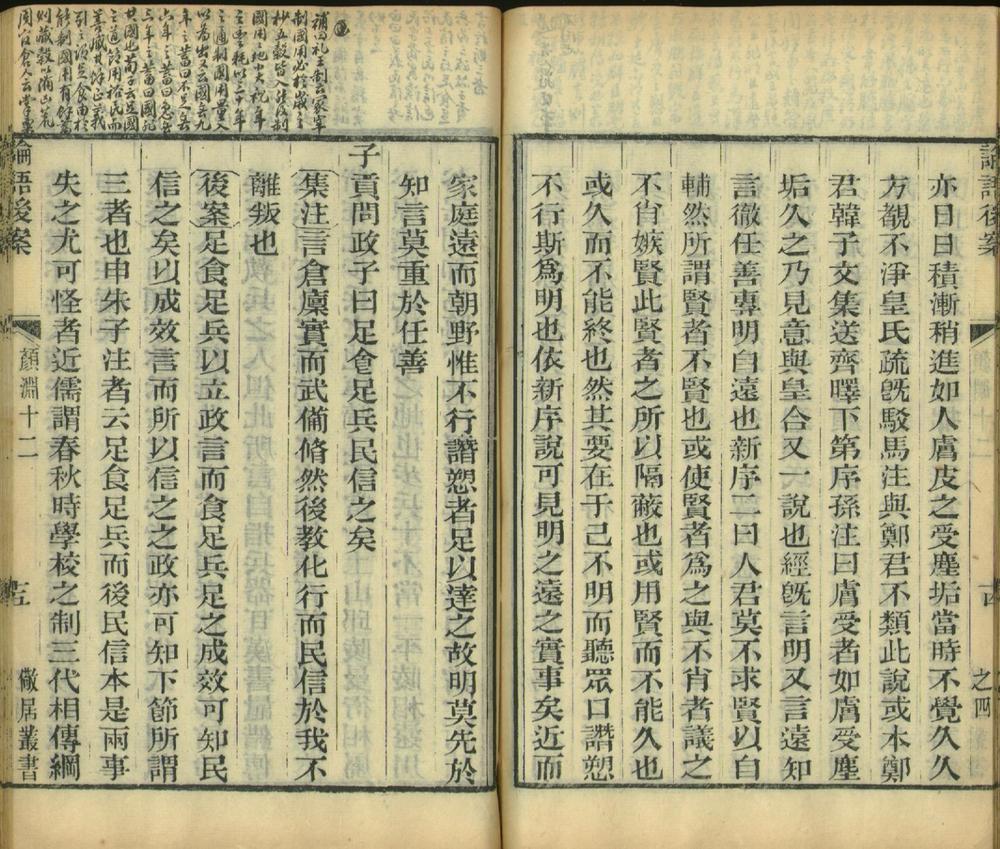 論語後案
亦日日積漸稍進如人膚皮之受塵垢當時不覺久久
方覩不淨皇氏疏旣駁馬注與鄭君不類此說或本鄭
君韓子文集送齊暤下第序孫注曰膚受者如膚受塵
垢久之乃見意與皇合又一說也經旣言明又言遠知
言徹任善專明自遠也新序二曰人君莫不求賢以自
輔然所謂賢者不賢也或使賢者爲之與不肖者議之
不肖嫉賢此賢者之所以隔蔽也或用賢而不能久也
或久而不能終也然其要在于己不明而聽眾口譖愬
不行斯爲明也依新序說可見明之遠之實事矣近而
十四
之四
家庭遠而朝野惟不行譖愬者足以達之故明莫先於
知言莫重於任善
子貢問政子曰足食足兵民信之矣
集注言倉廩實而武備脩然後教化行而民信於我不
離叛也
後案足食足兵以立政言而食足兵足之成效可知民
信之矣以成效言而所以信之之政亦可知下節所謂
三者也申朱子注者云足食足兵而後民信本是兩事
失之尤可怪者近儒謂春秋時學校之制三代相傳綱
論語後案
顏淵十二
十五
儆居叢書
補曰礼王制云冢宰
制國用必於歲之
杪五穀皆入然后制
國用用地小大視年
之豐耗以三十年
之通制國用量入
以爲出又云國無九
年之蓄曰不足無
六年之蓄曰急無
三年之蓄曰國非
其國也荀子云足國
之道節用裕民而
善臧其餘